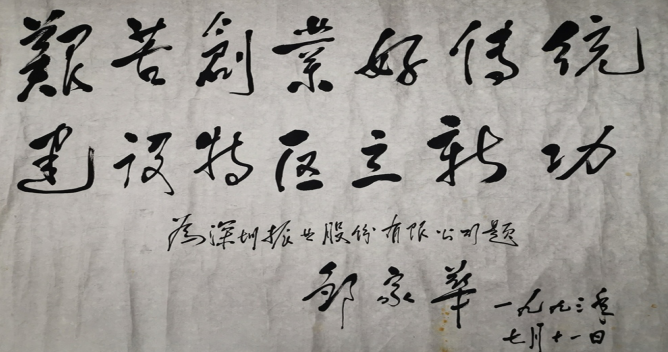 艱苦創業好传统
建设特区立新功
為深圳振业股份有限公司题
邹家華
一九九三年
七月十一日